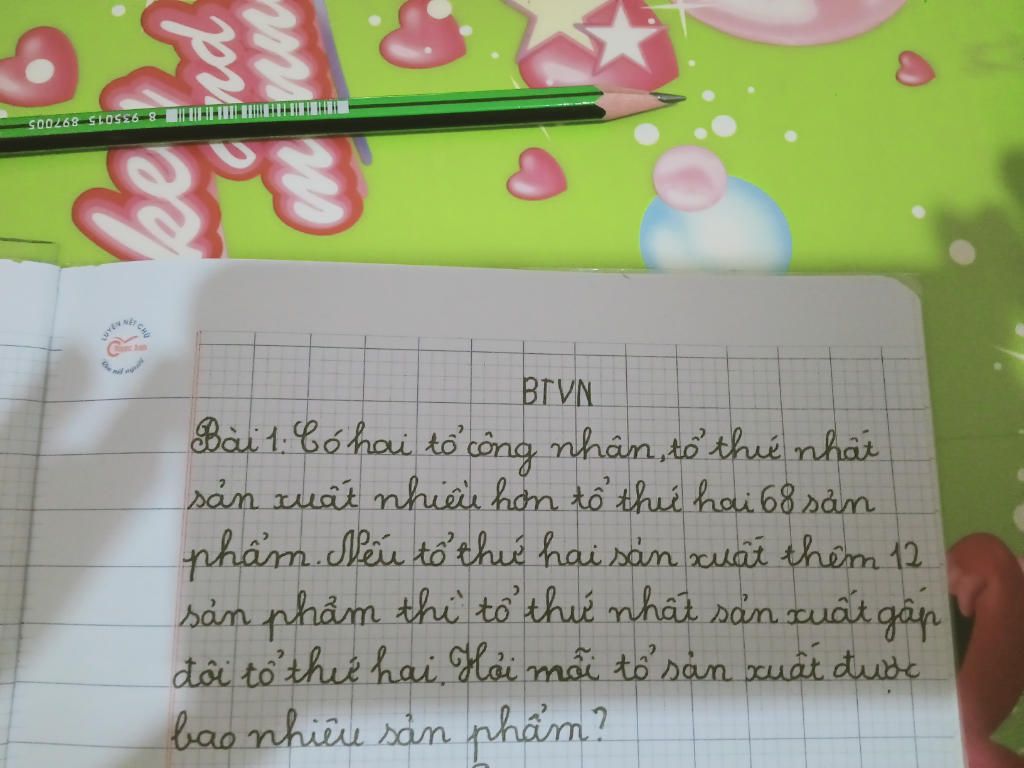 8 935015 897005
LUYỆN NÉT CHỮ
Rèn nết người
BTVN
Bài 1: Có hai tổ công nhân, tổ thứ nhất
sản xuất nhiều hơn tổ thứ hai 68 sản
phẩm. Nếu tổ thứ hai sản xuất thêm 12
sản phẩm thì tổ thứ nhất sản xuất gấp
đôi tổ thứ hai. Hỏi mỗi tổ sản xuất được
bao nhiêu sản phẩm?